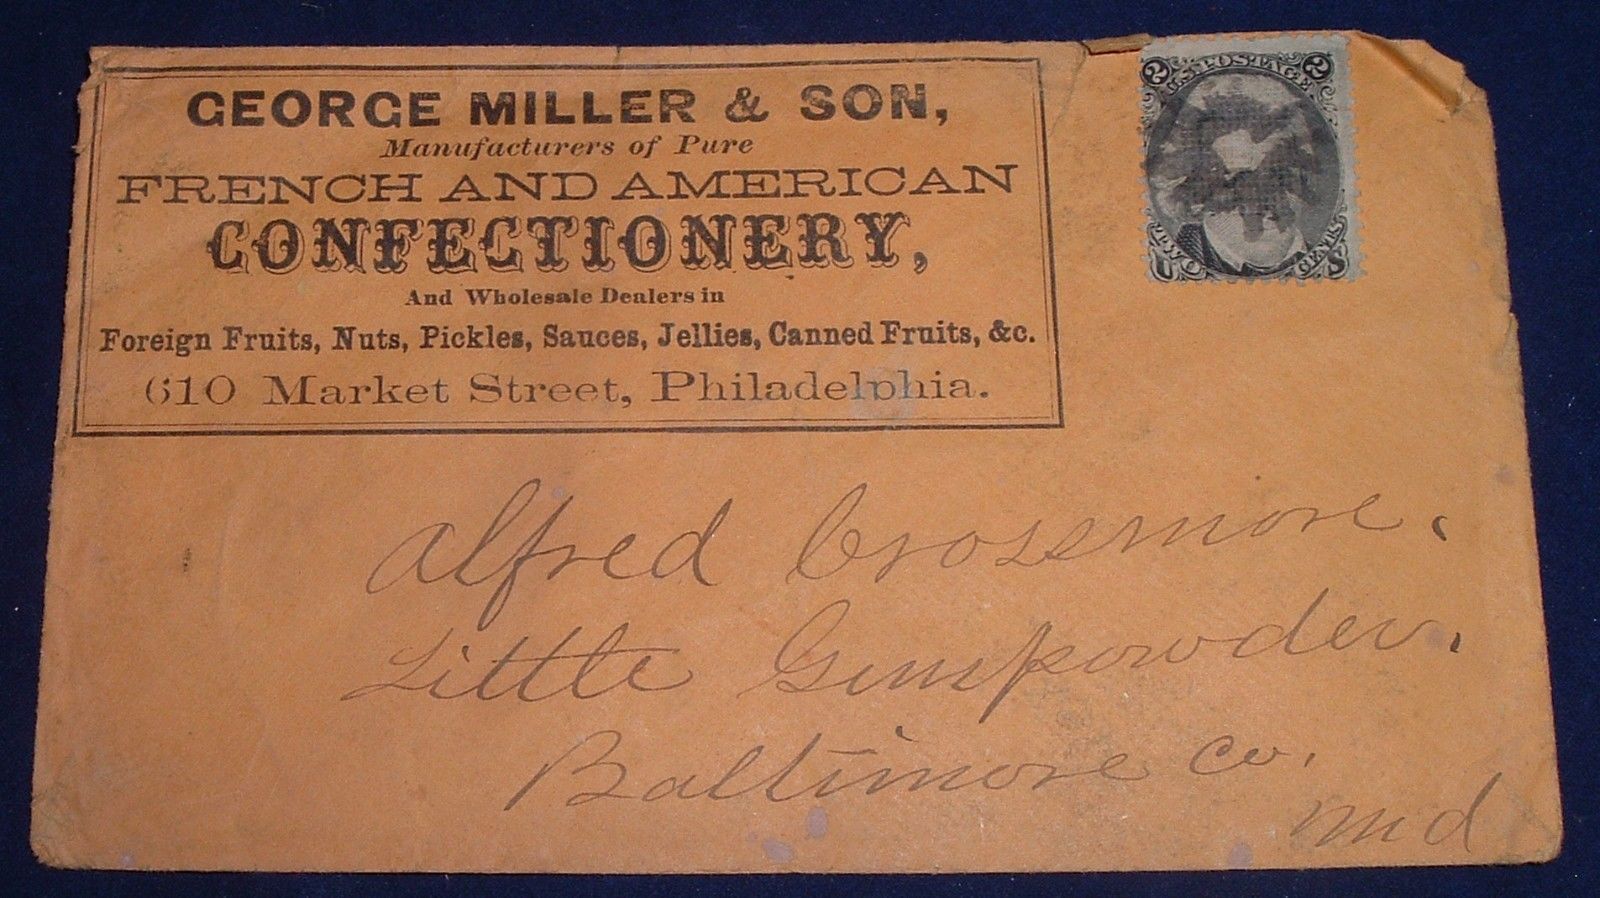 GEORGE MILLER & SON,
Manufacturers of Pure
FRENCH AND AMERICAN
CONFECTIONERY,
And Wholesale Dealers in
Foreign Fruits, Nuts, Pickles, Sauces, Jellies, Canned Fruits, &c.
610 Market Street, Philadelphia.
2 U.S. POSTAGE. 2
TWO CENTS.
U S
Alfred Crossmore.
Little Gunpowder.
Baltimore Co.
Md